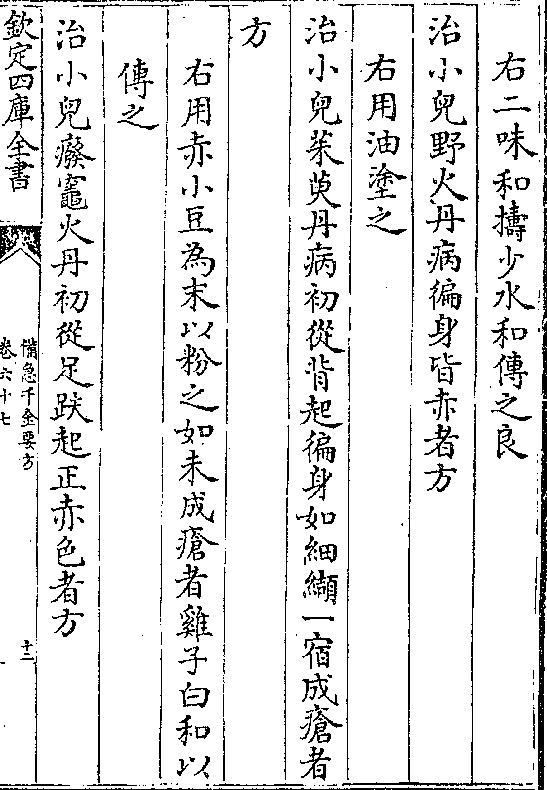 右二味和擣少水和傅之良
治小兒野火丹病徧身皆赤者方
右用油塗之
治小兒茱萸丹病初從背起徧身如細纈一宿成瘡者
方
右用赤小豆為末以粉之如未成瘡者雞子白和以
傅之
治小兒癈竈火丹初從足趺起正赤色者方
欽定四庫全書
備急千金要方
卷六十七
十二